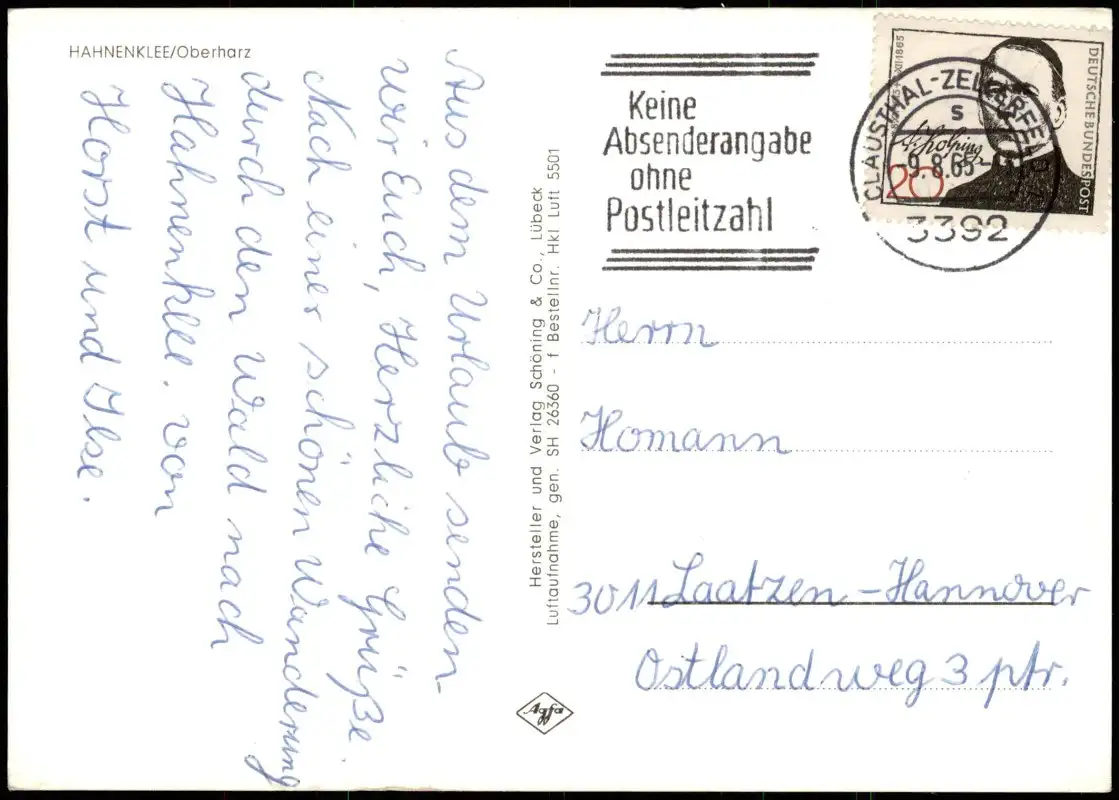 HAHNENKLEE/Oberharz
Aus dem Urlaub senden
wir Euch, Herzliche Grüße.
Nach einer schönen Wanderung
durch den Wald nach
Hahnenklee. von
Horst und Ilse.
Hersteller und Verlag Schöning & Co., Lübeck
Luftaufnahme, gen. SH 26360 - f Bestellnr. Hkl Luft 5501
Agfa
Keine
Absenderangabe
ohne
Postleitzahl
CLAUSTHAL-ZELLERFELD
9.8.65
3392
DEUTSCHE BUNDESPOST
A. Kolping
20
1865
Herrn
Homann
3011 Laatzen-Hannover
Ostlandweg 3 ptr.